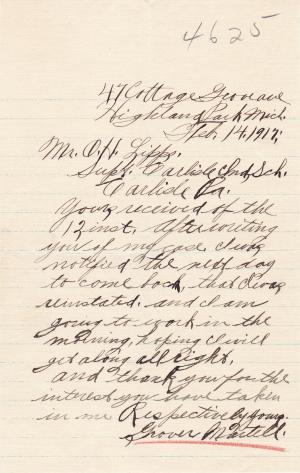 4625
47 Cottage Grove ave
Highland Park Mich.
Feb. 14, 1917,
Mr. O.H. Lipps.
Supt. Carlisle Ind. Sch.
Carlisle Pa.
Yours recived of the
12 inst. after writing
you of my case I was
notified the next day
to come back, that I was
reinstated. and I am
going to work in the
morning, hoping I will
get along all right.
and thank you for the
interest you have taken
in me Respectively yours.
Grover Martell.